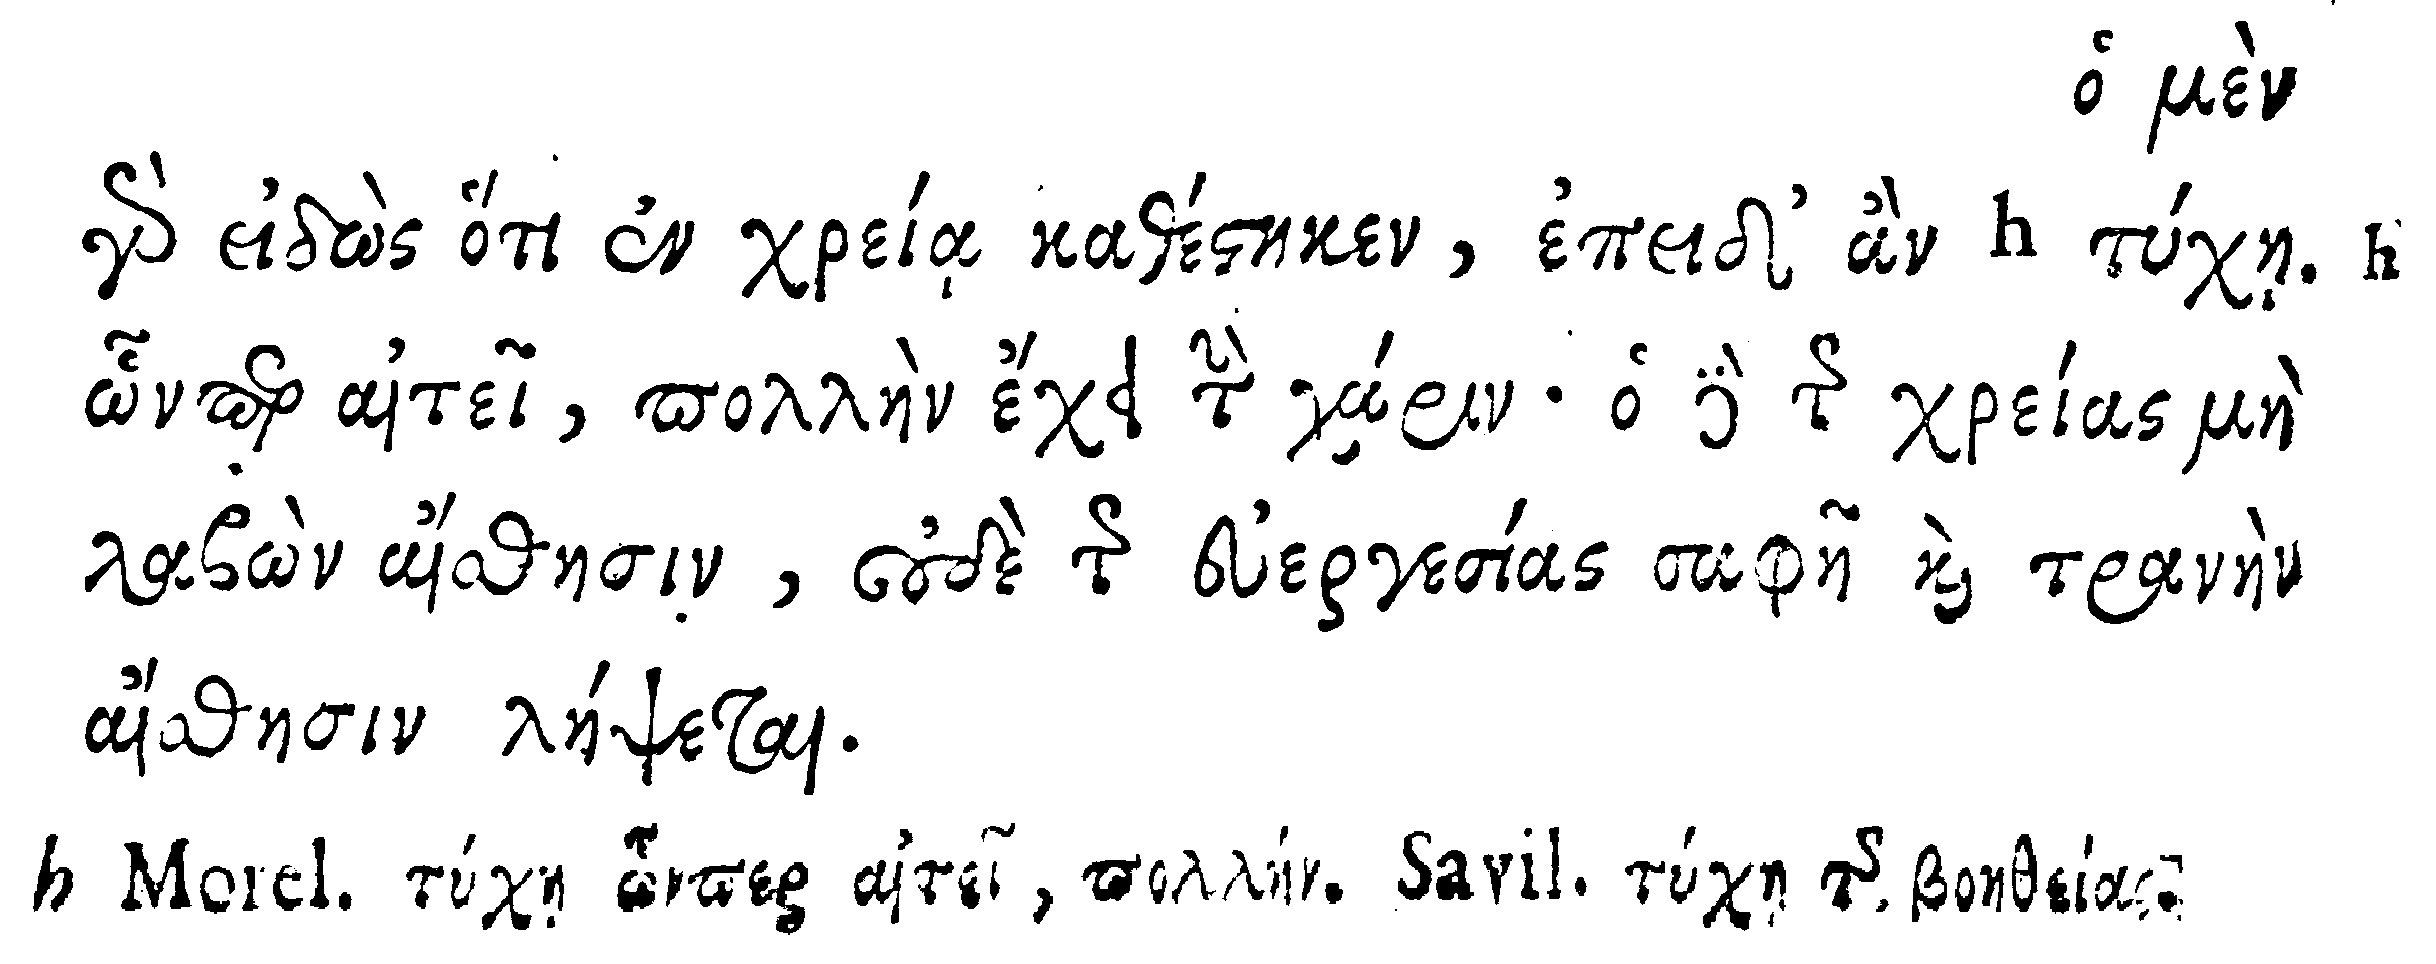 ὁ μὲν
γὸ εἰδὼς ὅτι ἐν χρείᾳ καθέστηκεν, ἐπειδ᾽ ἂν h τύχῃ. h
ὧνπερ αἰτεῖ, πολλὴν ἔχει τὴν χάριν· ὁ δὲ τῆς χρείας μὴ
λαβὼν αἴσθησιν, οὐδὲ τῆς εὐεργεσίας σαφῆ καὶ τρανὴν
αἴσθησιν λήψεται.
h Morel. τύχῃ ὧνπερ αἰτεῖ, πολλήν. Savil. τύχῃ τῆς βοηθείας.